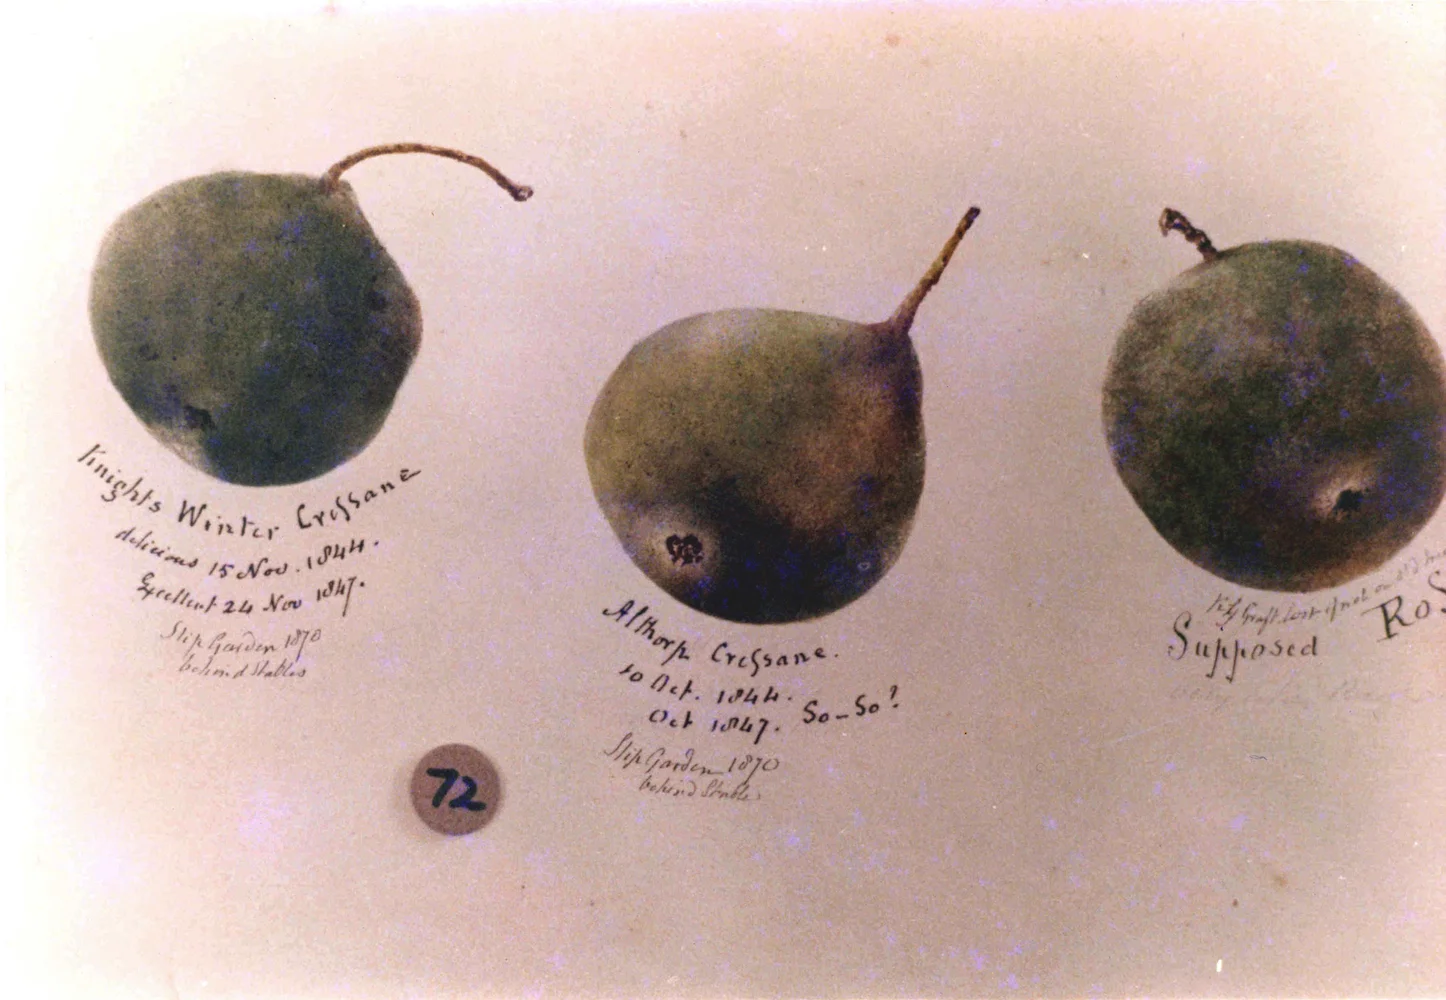 Knights Winter Creſsane
delicious 15 Nov. 1844.
Excellent 24 Nov 1847.
Slip Garden 1870
behind Stables
Althorp Creſsane.
10 Oct. 1844.
Oct 1847. So-So?
Slip Garden 1870
behind Stable
72
Graft lost if not on
Supposed Ros